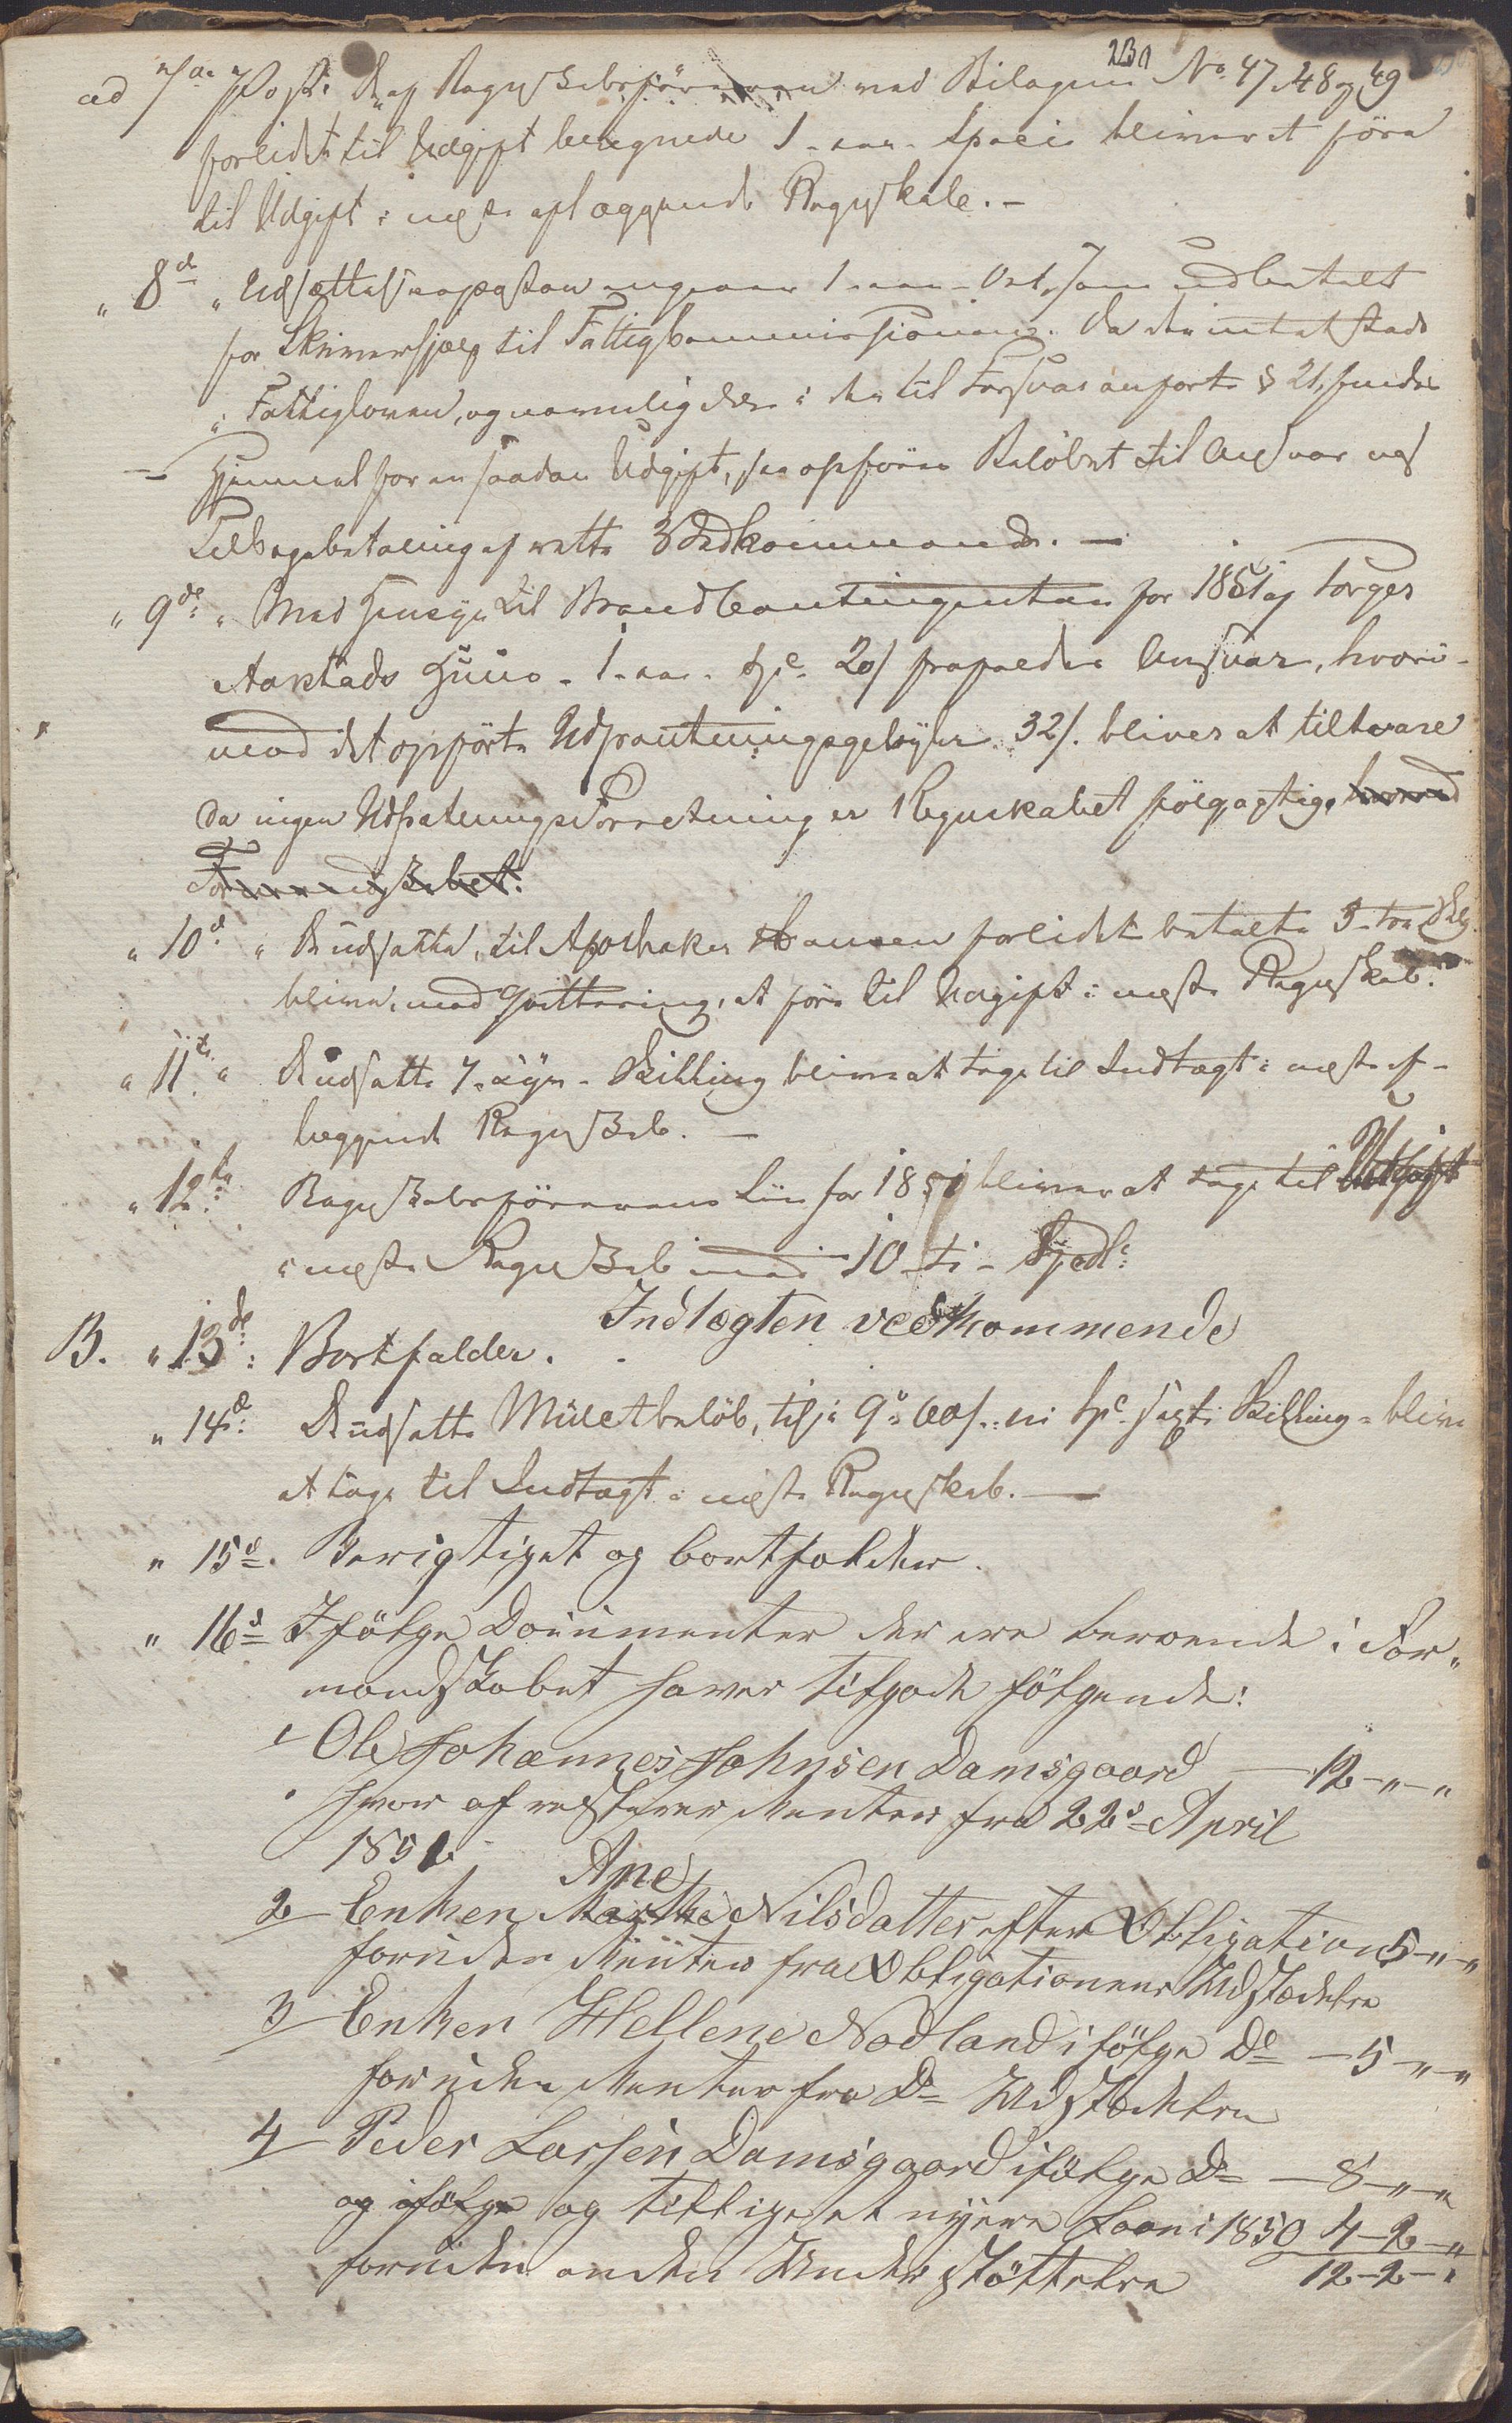 230
ad 7de Post. De af Regnskabsföreren ved Bilagene No. 47, 48 og 49
forlidet til Udgift beregnede 1 - een - Specie bliver at före
til Udgift i næste aflæggende Regnskab. -
" 8de " Udsættelsesposten angaaer 1 - een - Ort, som udbetalt
for Skriverhjælp til Fattigkommissionen. Da der intetsteds
i Fattigloven, og navnlig ikke i den til Forsvar anförte § 21, findes
Hjemmel for en saadan Udgift, saa opföres Belöbet til Ansvar ved
Tilbagebetaling af rette Vedkommende. -
" 9de " Med Hensyn til Brandkontingenten for 1851 af Torges
Aarstads Huus - 1 - een - Spe. 20 s frafalder Ansvar, hvori-
mod det opförte Udpantningsgebyhr 32 s. bliver at tilsvare
da ingen Udpantningsforretning er Regnskabet fölgagtig
Formandskabet.
" 10de " De udsatte, til Apotheker Hansen forlidet betalte 3 - tre Skilg.
bliver, mod Qvittering, at före til Udgift i næste Regnskab.
" 11te " De udsatte 7 - syv - Skilling bliver at tage til Indtægt i næste af-
læggende Regnskab. -
" 12te Regnskabsförerens Lön for 1851 bliver at tage til Udgift
i næste Regnskab med 10 - ti - Spdl:
Indtægten vedkommende
B. " 13de: Bortfalder.
" 14de: De udsatte Mulctbelöb, tilsa. 9 " 60 s. ni Spe. sexti Skilling - bliver
at tage til Indtægt i næste Regnskab. -
" 15de. Berigtiget og bortfalder.
" 16de Ifölge Documenter der ere beroende i For-
mandskabet haver tilgode fölgende:
1 Ole Johannes Johnsen Damsgaard - 12 - " - "
hvor af resterer Renter fra 22de April
1851
Ane
2 Enken Marthe Nilsdatter efter Obligation 5 - " - "
foruden Renter fra Obligationens Udstædelse
3 Enken Hellene Nodland ifölge Do - 5 - " - "
foruden Renter fra Do Udstædelse
4 Peder Larsen Damsgaard ifölge Do - 8 - " - "
og ifölge og tillige et nyere Laan i 1850 4 - 2 - "
foruden anden Understöttelse 12 - 2 - "